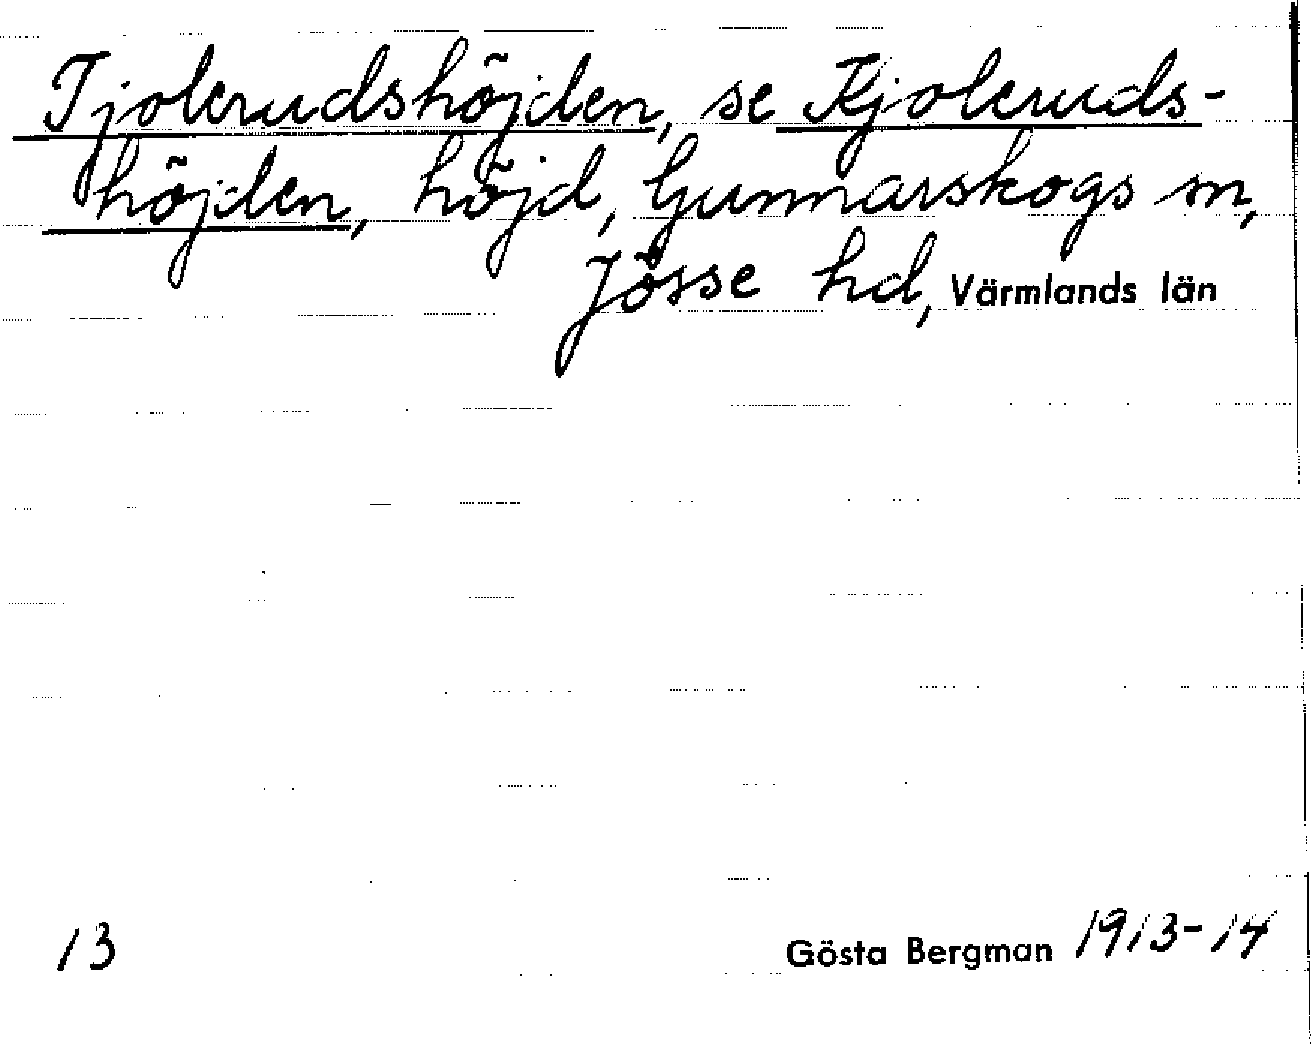 Tjolerudshöjden, se Kjoleruds-
höjden, höjd, Gunnarskogs sn,
Jösse hd, Värmlands län
13
Gösta Bergman 1913-14